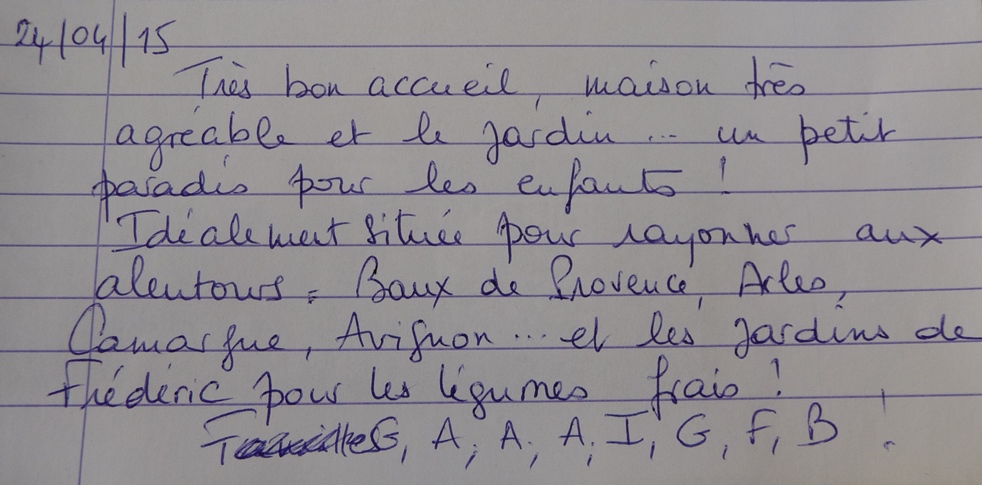 24/04/15
Très bon accueil, maison très
agréable et le jardin... un petit
paradis pour les enfants !
Idéalement située pour rayonner aux
alentours : Baux de Provence, Arles,
Camargue, Avignon... et les jardins de
Frédéric pour les légumes frais !
G, A, A, A, I, G, F, B !